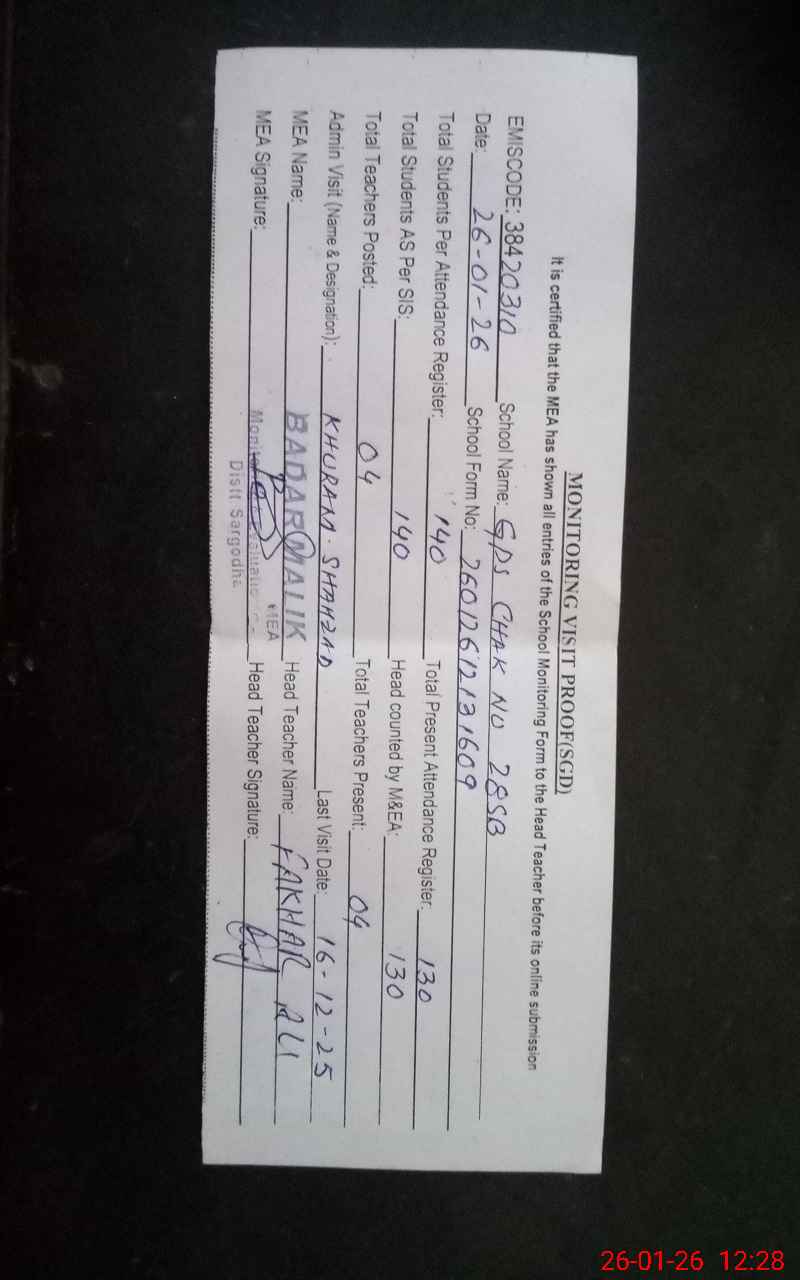 MONITORING VISIT PROOF(SGD)
It is certified that the MEA has shown all entries of the School Monitoring Form to the Head Teacher before its online submission
EMISCODE: 38420310 School Name: GPS CHAK NO 28SB
Date: 26-01-26 School Form No: 26012612131609
Total Students Per Attendance Register: 140 Total Present Attendance Register: 130
Total Students AS Per SIS: 140 Head counted by M&EA: 130
Total Teachers Posted: 04 Total Teachers Present: 04
Admin Visit (Name & Designation): KHURAM. SHAHZAD Last Visit Date: 16-12-25
MEA Name: BADAR MALIK Head Teacher Name: FAKHAR ALI
MEA
MEA Signature: Head Teacher Signature:
Distt: Sargodha
26-01-26 12:28